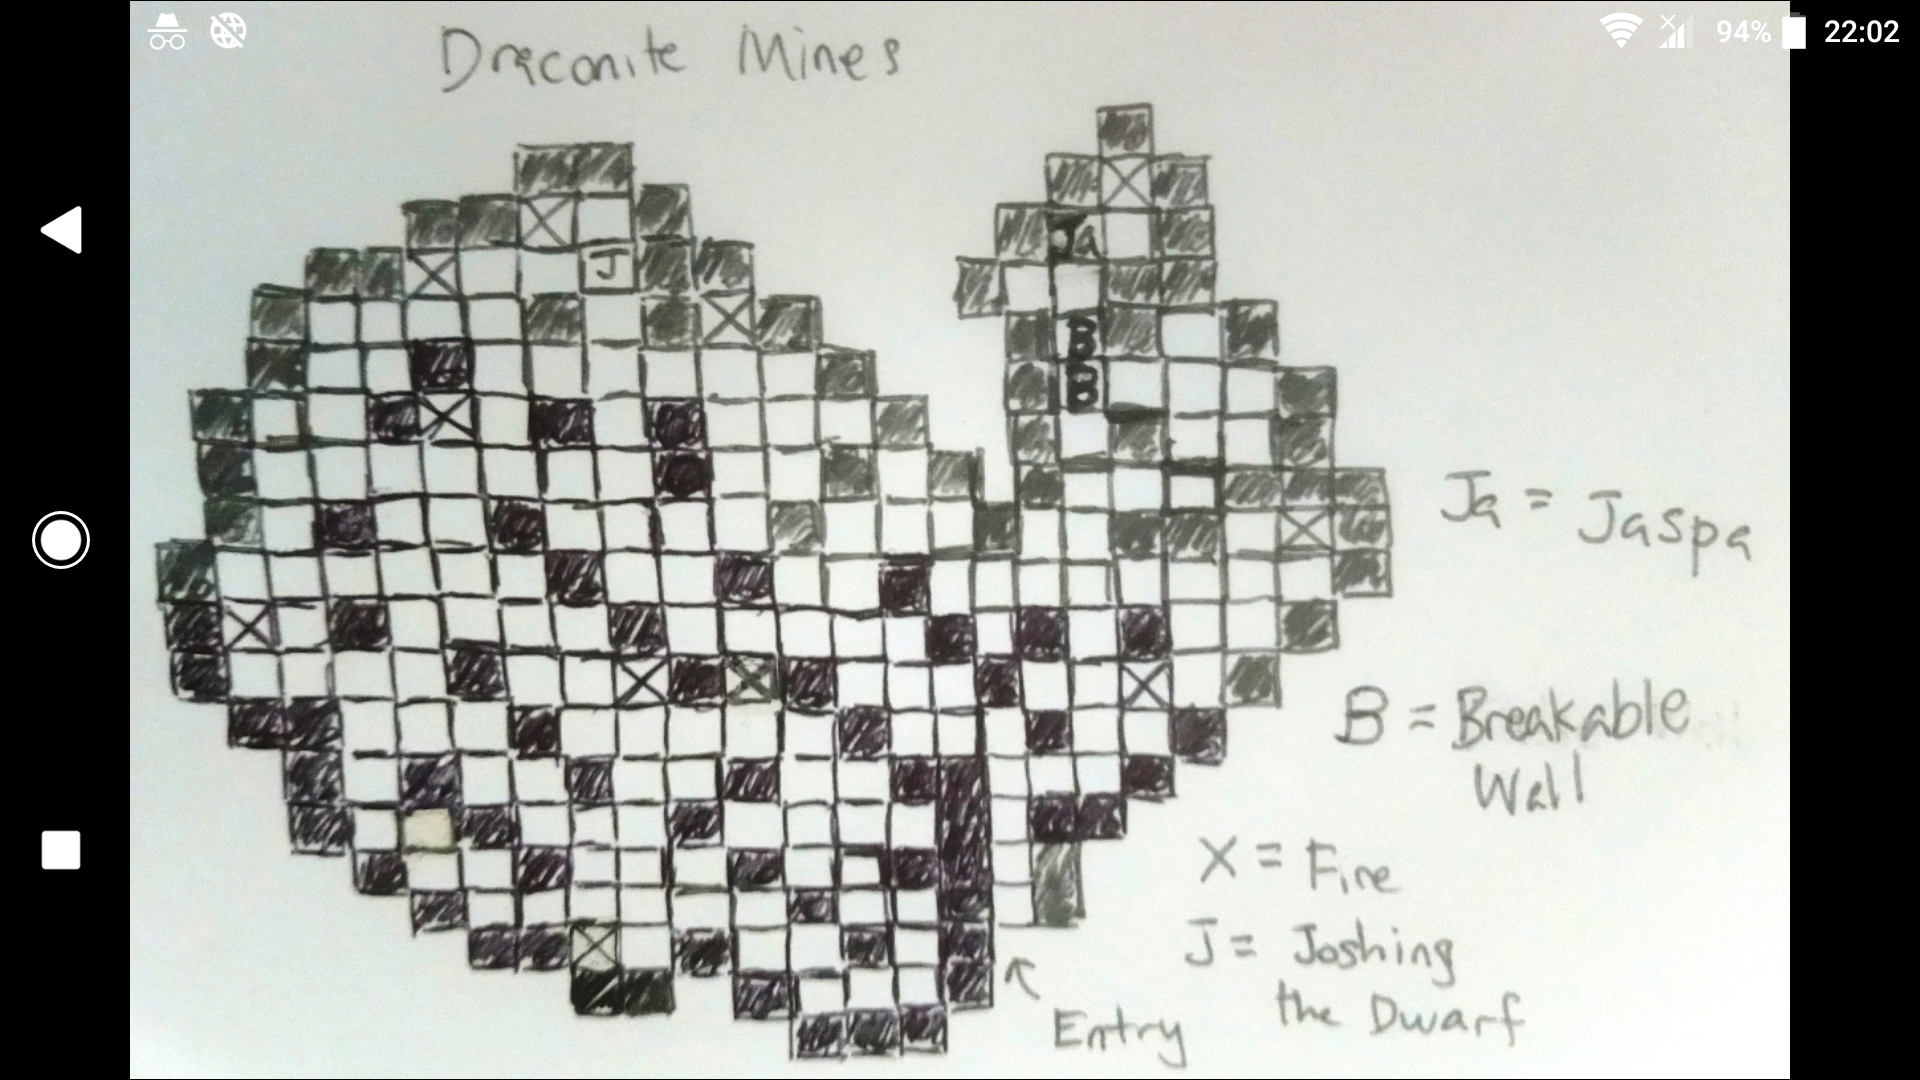 94% 22:02
Draconite Mines
Ja
J
B
B
Ja = Jaspa
B = Breakable
Wall
X = Fire
J = Joshing
the Dwarf
Entry